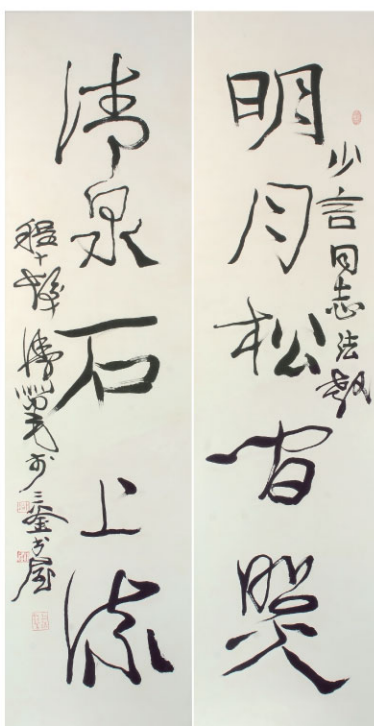 明月松間照
少言同志法教
清泉石上流
程十髮
三釜書屋